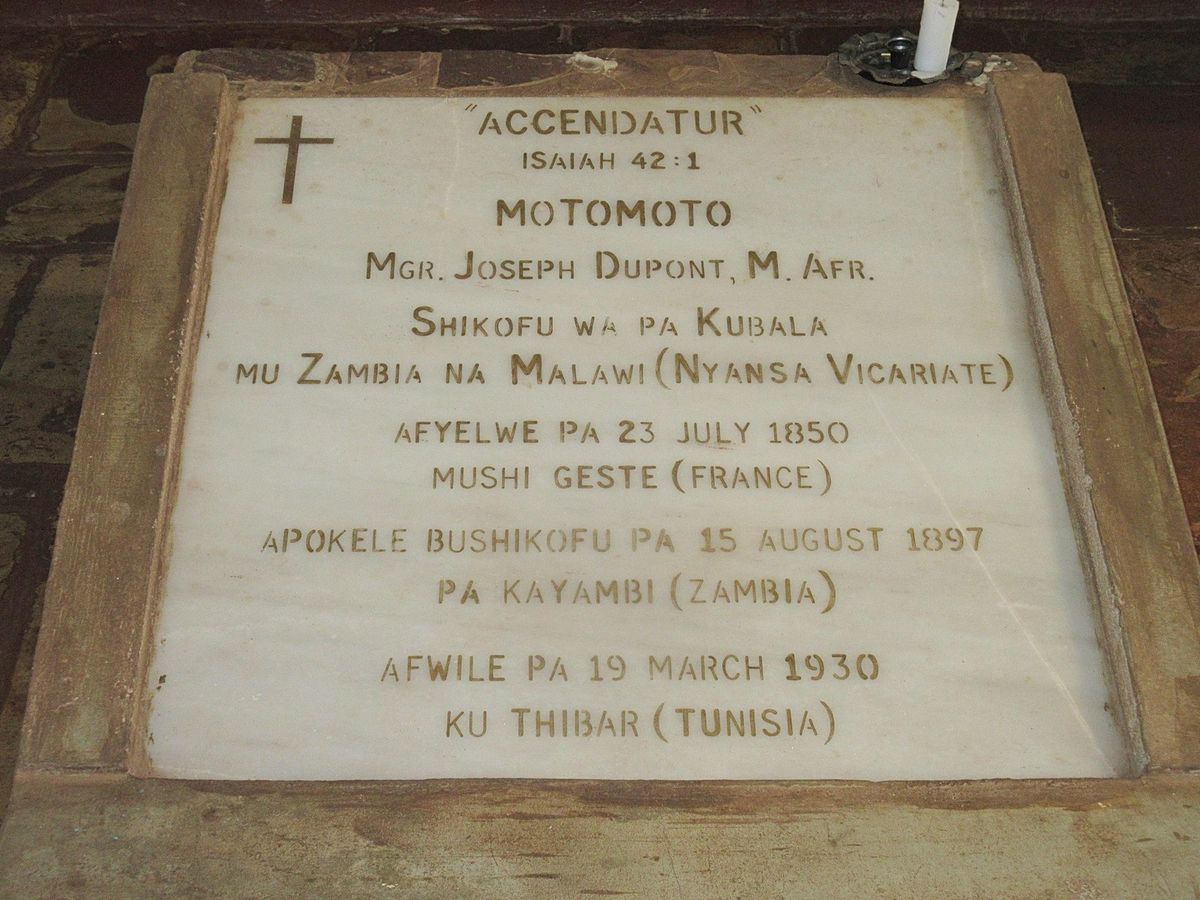 "ACCENDATUR"
ISAIAH 42:1
MOTOMOTO
MGR. JOSEPH DUPONT, M. AFR.
SHIKOFU WA PA KUBALA
MU ZAMBIA NA MALAWI (NYANSA VICARIATE)
AFYELWE PA 23 JULY 1850
MUSHI GESTE (FRANCE)
APOKELE BUSHIKOFU PA 15 AUGUST 1897
PA KAYAMBI (ZAMBIA)
AFWILE PA 19 MARCH 1930
KU THIBAR (TUNISIA)